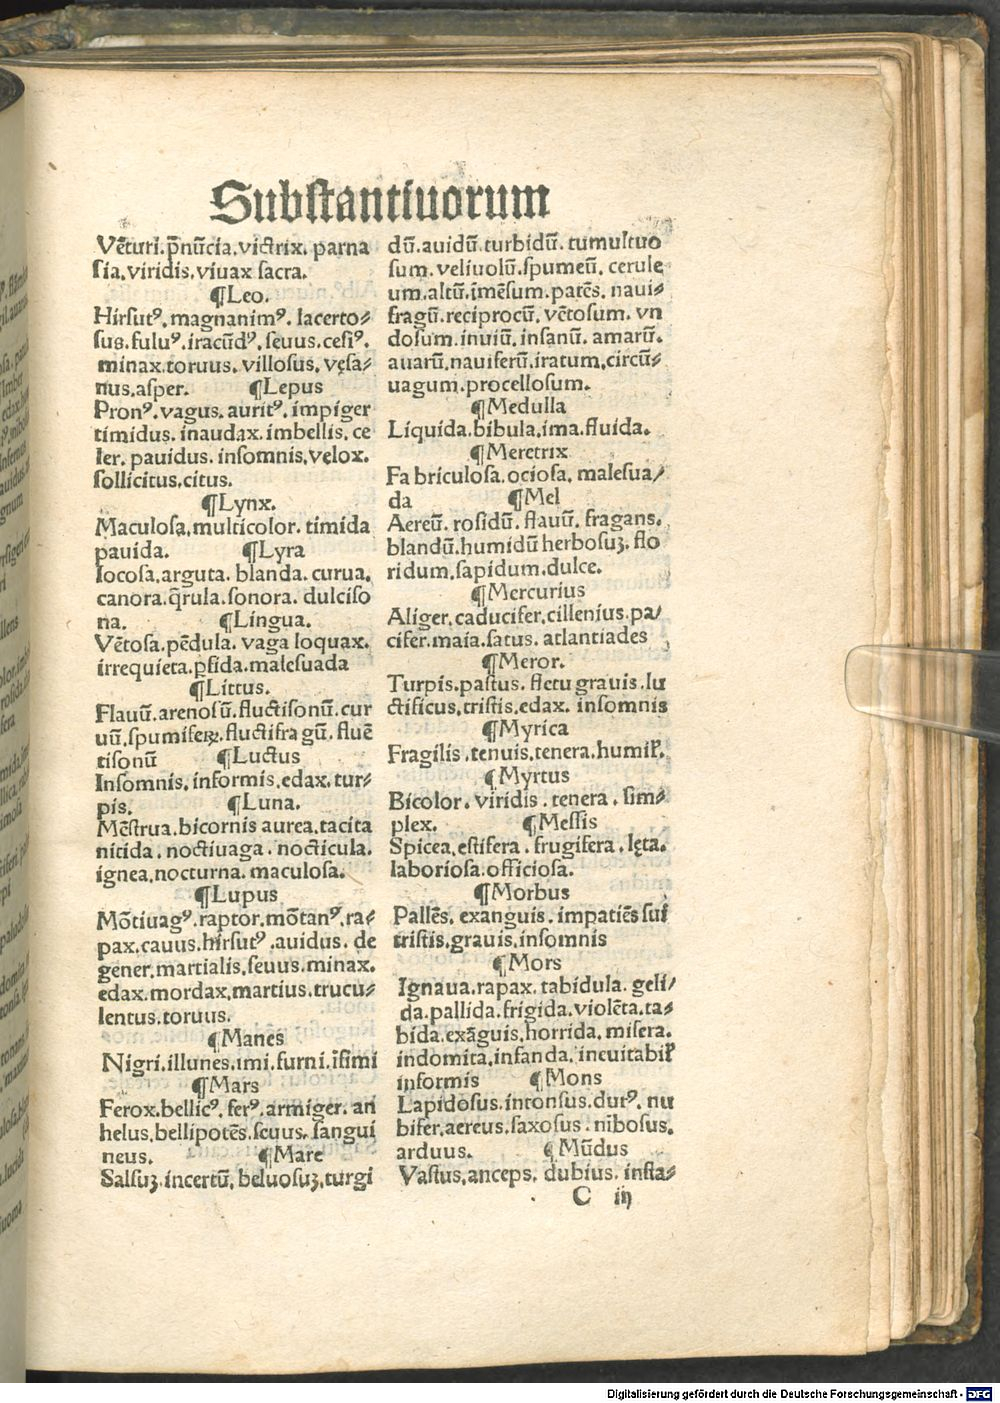 Substantiuorum
Vẽturi.p̃nũcia.victrix.parna
sia.viridis.viuax sacra.
¶Leo.
Hirsutꝰ.magnanimꝰ.lacerto⸗
sus.fuluꝰ.iracũdꝰ.seuus.cesiꝰ.
minax.toruus.villosus.vęsa⸗
nus.asper. ¶Lepus
Pronꝰ.vagus.auritꝰ.impiger
timidus.inaudax.imbellis.ce
ler.pauidus.insomnis.velox.
sollicitus.citus.
¶Lynx.
Maculosa.multicolor.timida
pauida. ¶Lyra
Iocosa.arguta.blanda.curua.
canora.q̃rula.sonora.dulciso
na. ¶Lingua.
Vẽtosa.pẽdula.vaga loquax.
irrequieta.ꝑfida.malesuada
¶Littus.
Flauũ.arenosũ.fluctisonũ.cur
uũ.spumiferꝝ.fluctifra gũ.fluẽ
tisonũ ¶Luctus
Insomnis.informis.edax.tur⸗
pis. ¶Luna.
Mẽstrua.bicornis aurea.tacita
nitida.noctiuaga.nocticula.
ignea.nocturna.maculosa.
¶Lupus
Mõtiuagꝰ.raptor.mõtanꝰ.ra⸗
pax.cauus.hirsutꝰ.auidus.de
gener.martialis.seuus.minax.
edax.mordax.martius.trucu⸗
lentus.toruus.
¶Manes
Nigri.illunes.imi.furni.ĩfimi
¶Mars
Ferox.bellicꝰ.ferꝰ.armiger.an
helus.bellipotẽs.scuus.sangui
neus. ¶Mare
Salsuꝫ.incertũ.beluosuꝫ.turgi
dũ.auidũ.turbidũ.tumultuo
sum.veliuolũ.spumeũ.cerule
um.altũ.ĩmẽsum.patẽs.naui⸗
fragũ.reciprocũ.vẽtosum.vn
dosum.inuiũ.insanũ.amarũ.
auarũ.nauiferũ.iratum.circũ⸗
uagum.procellosum.
¶Medulla
Liquida.bibula.ima.fluida.
¶Meretrix
Fa briculosa.ociosa.malesua/
da ¶Mel
Aereũ.rosidũ.flauũ.fragans.
blandũ.humidũ herbosuꝫ.flo
ridum.sapidum.dulce.
¶Mercurius
Aliger.caducifer.cillenius.pa/
cifer.maia.satus.atlantiades
¶Meror.
Turpis.pastus.fletu grauis.lu
ctificus.tristis.edax.insomnis
¶Myrica
Fragilis.tenuis.tenera.humił.
¶Myrtus
Bicolor.viridis.tenera.sim⸗
plex. ¶Messis
Spicea.estifera.frugifera.lęta.
laboriosa.officiosa.
¶Morbus
Pallẽs.exanguis.impatiẽs sui
tristis.grauis.insomnis
¶Mors
Ignaua.rapax.tabidula.geli/
da.pallida.frigida.violẽta.ta⸗
bida.exãguis.horrida.misera.
indomita.infanda.ineuitabił
informis ¶Mons
Lapidosus.intonsus.durꝰ.nu
bifer.aereus.saxosus.nĩbosus.
arduus. ¶Mũdus
Vastus.anceps.dubius.insta⸗
C iij
Digitalisierung gefördert durch die Deutsche Forschungsgemeinschaft - DFG